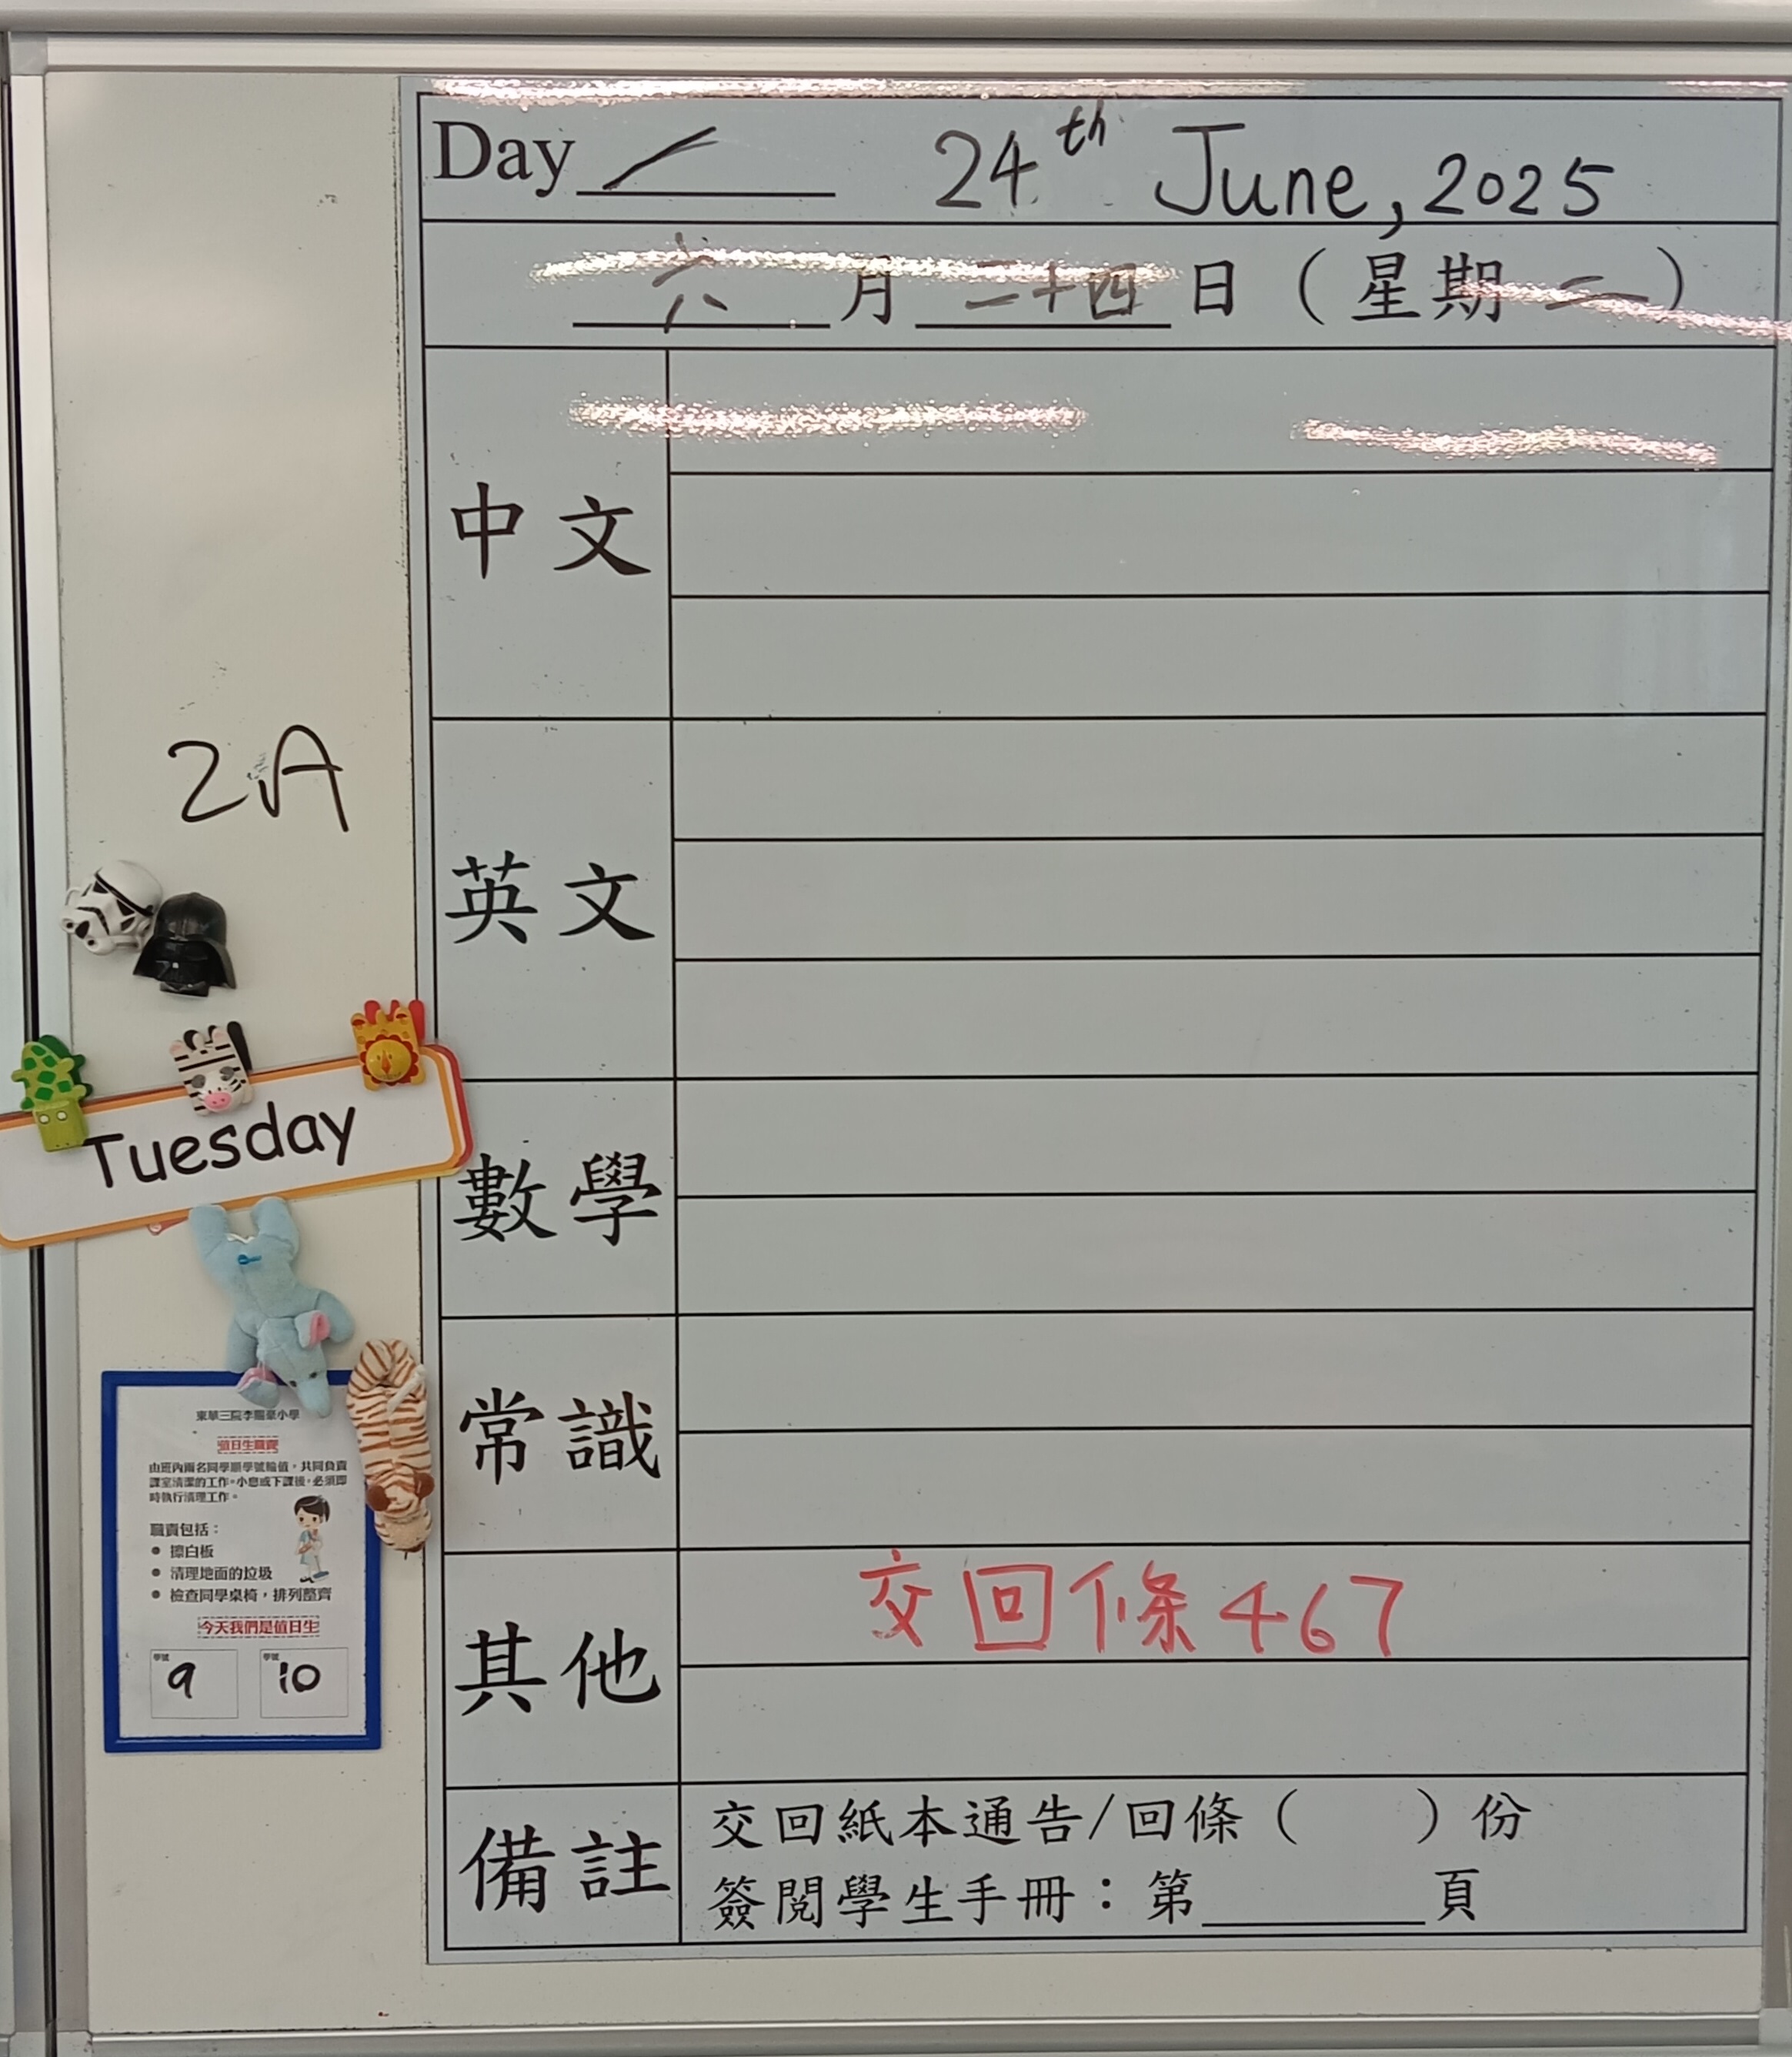 Day / 24th June, 2025
六月二十四日（星期二）
中文
英文
數學
常識
其他 交回條467
備註 交回紙本通告/回條（ ）份
簽閱學生手冊：第 頁
2A
Tuesday
東華三院李賜豪小學
值日生職責
由班內兩名同學順學號輪值，共同負責
課室清潔的工作。小息或下課後，必須即
時執行清理工作。
職責包括：
● 擦白板
● 清理地面的垃圾
● 檢查同學桌椅，排列整齊
今天我們是值日生
學號 學號
9 10